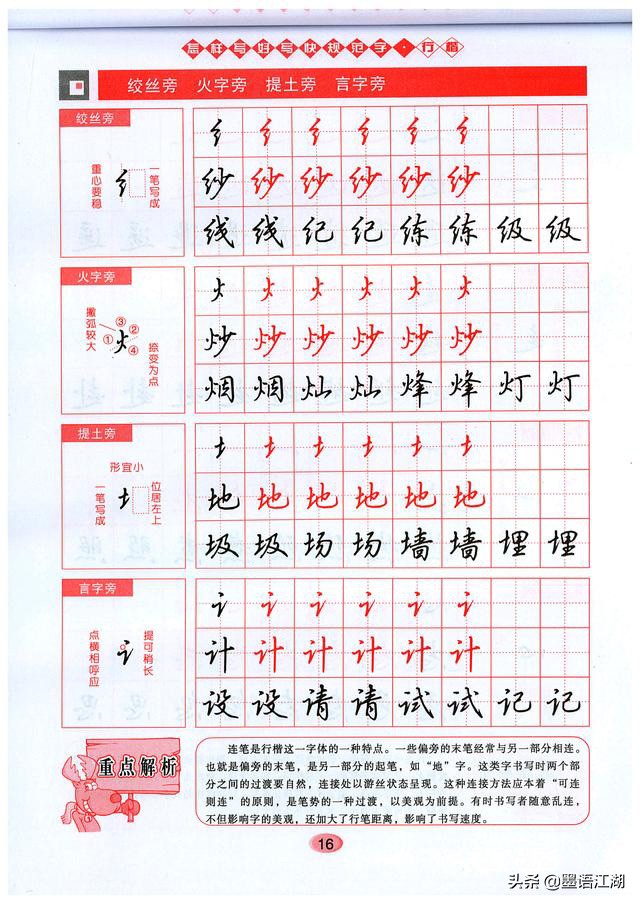 怎样写好写快规范字·行楷
绞丝旁 火字旁 提土旁 言字旁
绞丝旁
重心要稳
纟
一笔写成
纟 纟 纟 纟 纟 纟
纱 纱 纱 纱 纱 纱
线 线 纪 纪 练 练 级 级
火字旁
撇弧较大
③
① 火 ②
④
捺变为点
火 火 火 火 火 火
炒 炒 炒 炒 炒 炒
烟 烟 灿 灿 烽 烽 灯 灯
提土旁
形宜小
一笔写成
土
位居左上
土 土 土 土 土 土
地 地 地 地 地 地
圾 圾 场 场 墙 墙 埋 埋
言字旁
点横相呼应
讠
提可稍长
讠 讠 讠 讠 讠 讠
计 计 计 计 计 计
设 设 请 请 试 试 记 记
重点解析
连笔是行楷这一字体的一种特点。一些偏旁的末笔经常与另一部分相连。
也就是偏旁的末笔，是另一部分的起笔，如“地”字。这类字书写时两个部
分之间的过渡要自然，连接处以游丝状态呈现。这种连接方法应本着“可连
则连”的原则，是笔势的一种过渡，以美观为前提。有时书写者随意乱连，
不但影响字的美观，还加大了行笔距离，影响了书写速度。
16
头条 @墨语江湖